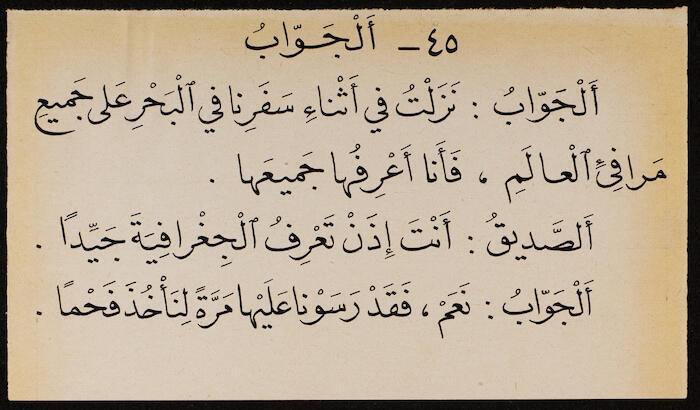 ٤٥ – أَلْجَوَّابُ
أَلْجَوّابُ : نَزَلْتُ في أَثْناءِ سَفَرِنا في ٱلْبَحْرِ عَلى جَميعِ
مَرافِئِ ٱلْعالَمِ ، فَأَنا أَعْرِفُها جَميعَها .
أَلصَّديقُ : أَنْتَ إِذَنْ تَعْرِفُ ٱلْجِغْرافِيَةَ جَيِّداً .
أَلْجَوّابُ : نَعَمْ ، فَقَدْ رَسَوْنا عَلَيْها مَرَّةً لِنَأْخُذَ فَحْماً .